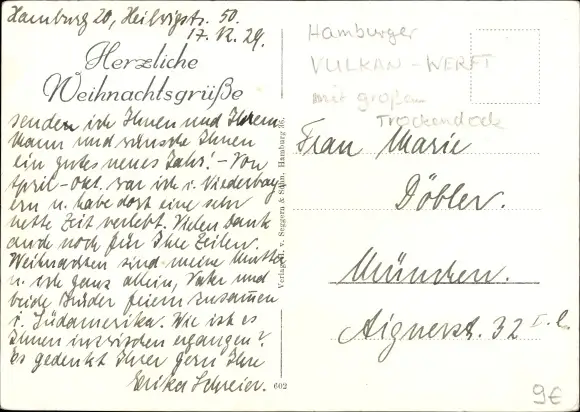 Hamburg 20, Heilwigstr. 50.
17. XII. 29.
Herzliche
Weihnachtsgrüße
senden ich Ihnen und Ihrem
Mann und wünsche Ihnen
ein gutes neues Jahr! - Von
April - Okt. war ich i. Niederbay
ern u. habe dort eine sehr
nette Zeit verlebt. Vielen Dank
auch noch für Ihre Zeilen.
Weihnachten sind meine Mutter
u. ich ganz allein, Vater und
beide Brüder feiern zusammen
i. Südamerika. Wie ist es
Ihnen inzwischen ergangen?
Es gedenkt Ihrer gern Ihre
Erika Schreier.
602
Verlag H. v. Seggern & Sohn, Hamburg 36.
Hamburger
VULKAN-WERFT
mit großem
Trockendock
Frau Marie
Döbler.
München.
Aignerstr. 32
9€